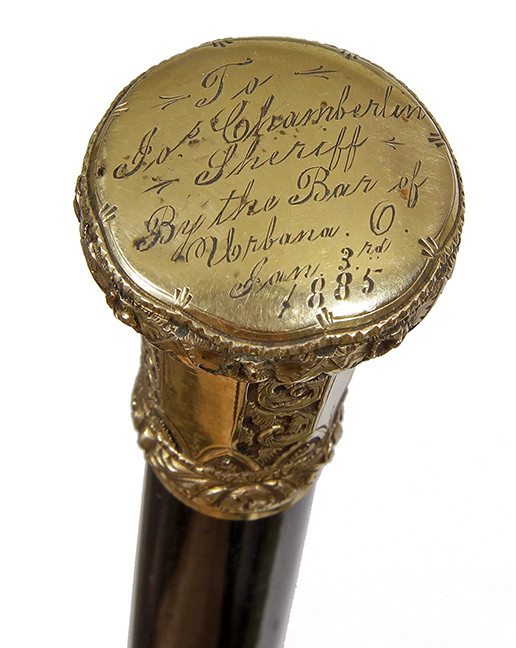 To
Jos. Chamberlin
Sheriff
By the Bar of
Urbana. O.
Jan. 3.rd
1885